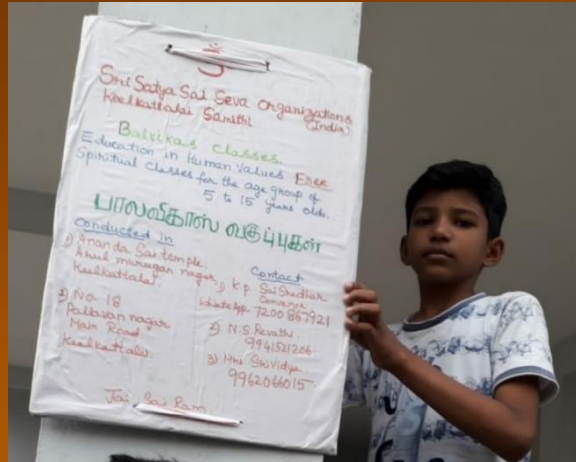 ௐ
Sri Satya Sai Seva Organizations
(India)
Keelkattalai Samithi
Balvikas classes.
Education in Human Values Free
Spiritual classes for the age group of
5 to 15 years olds.
பாலவிகாஸ் வகுப்புகள்
Conducted in
1) Ananda Sai temple
Arul murugan nagar,
Keelkattalai
2) No. 18
Pallavan nagar
Main Road
Keelkattalai
Contact
1) K.P Sai Sridhar
Convenor
WhatsApp. 7200867921
2) N.S. Revathi
9941521206
3) Mrs. Srividya
9962066015
Jai Sai Ram